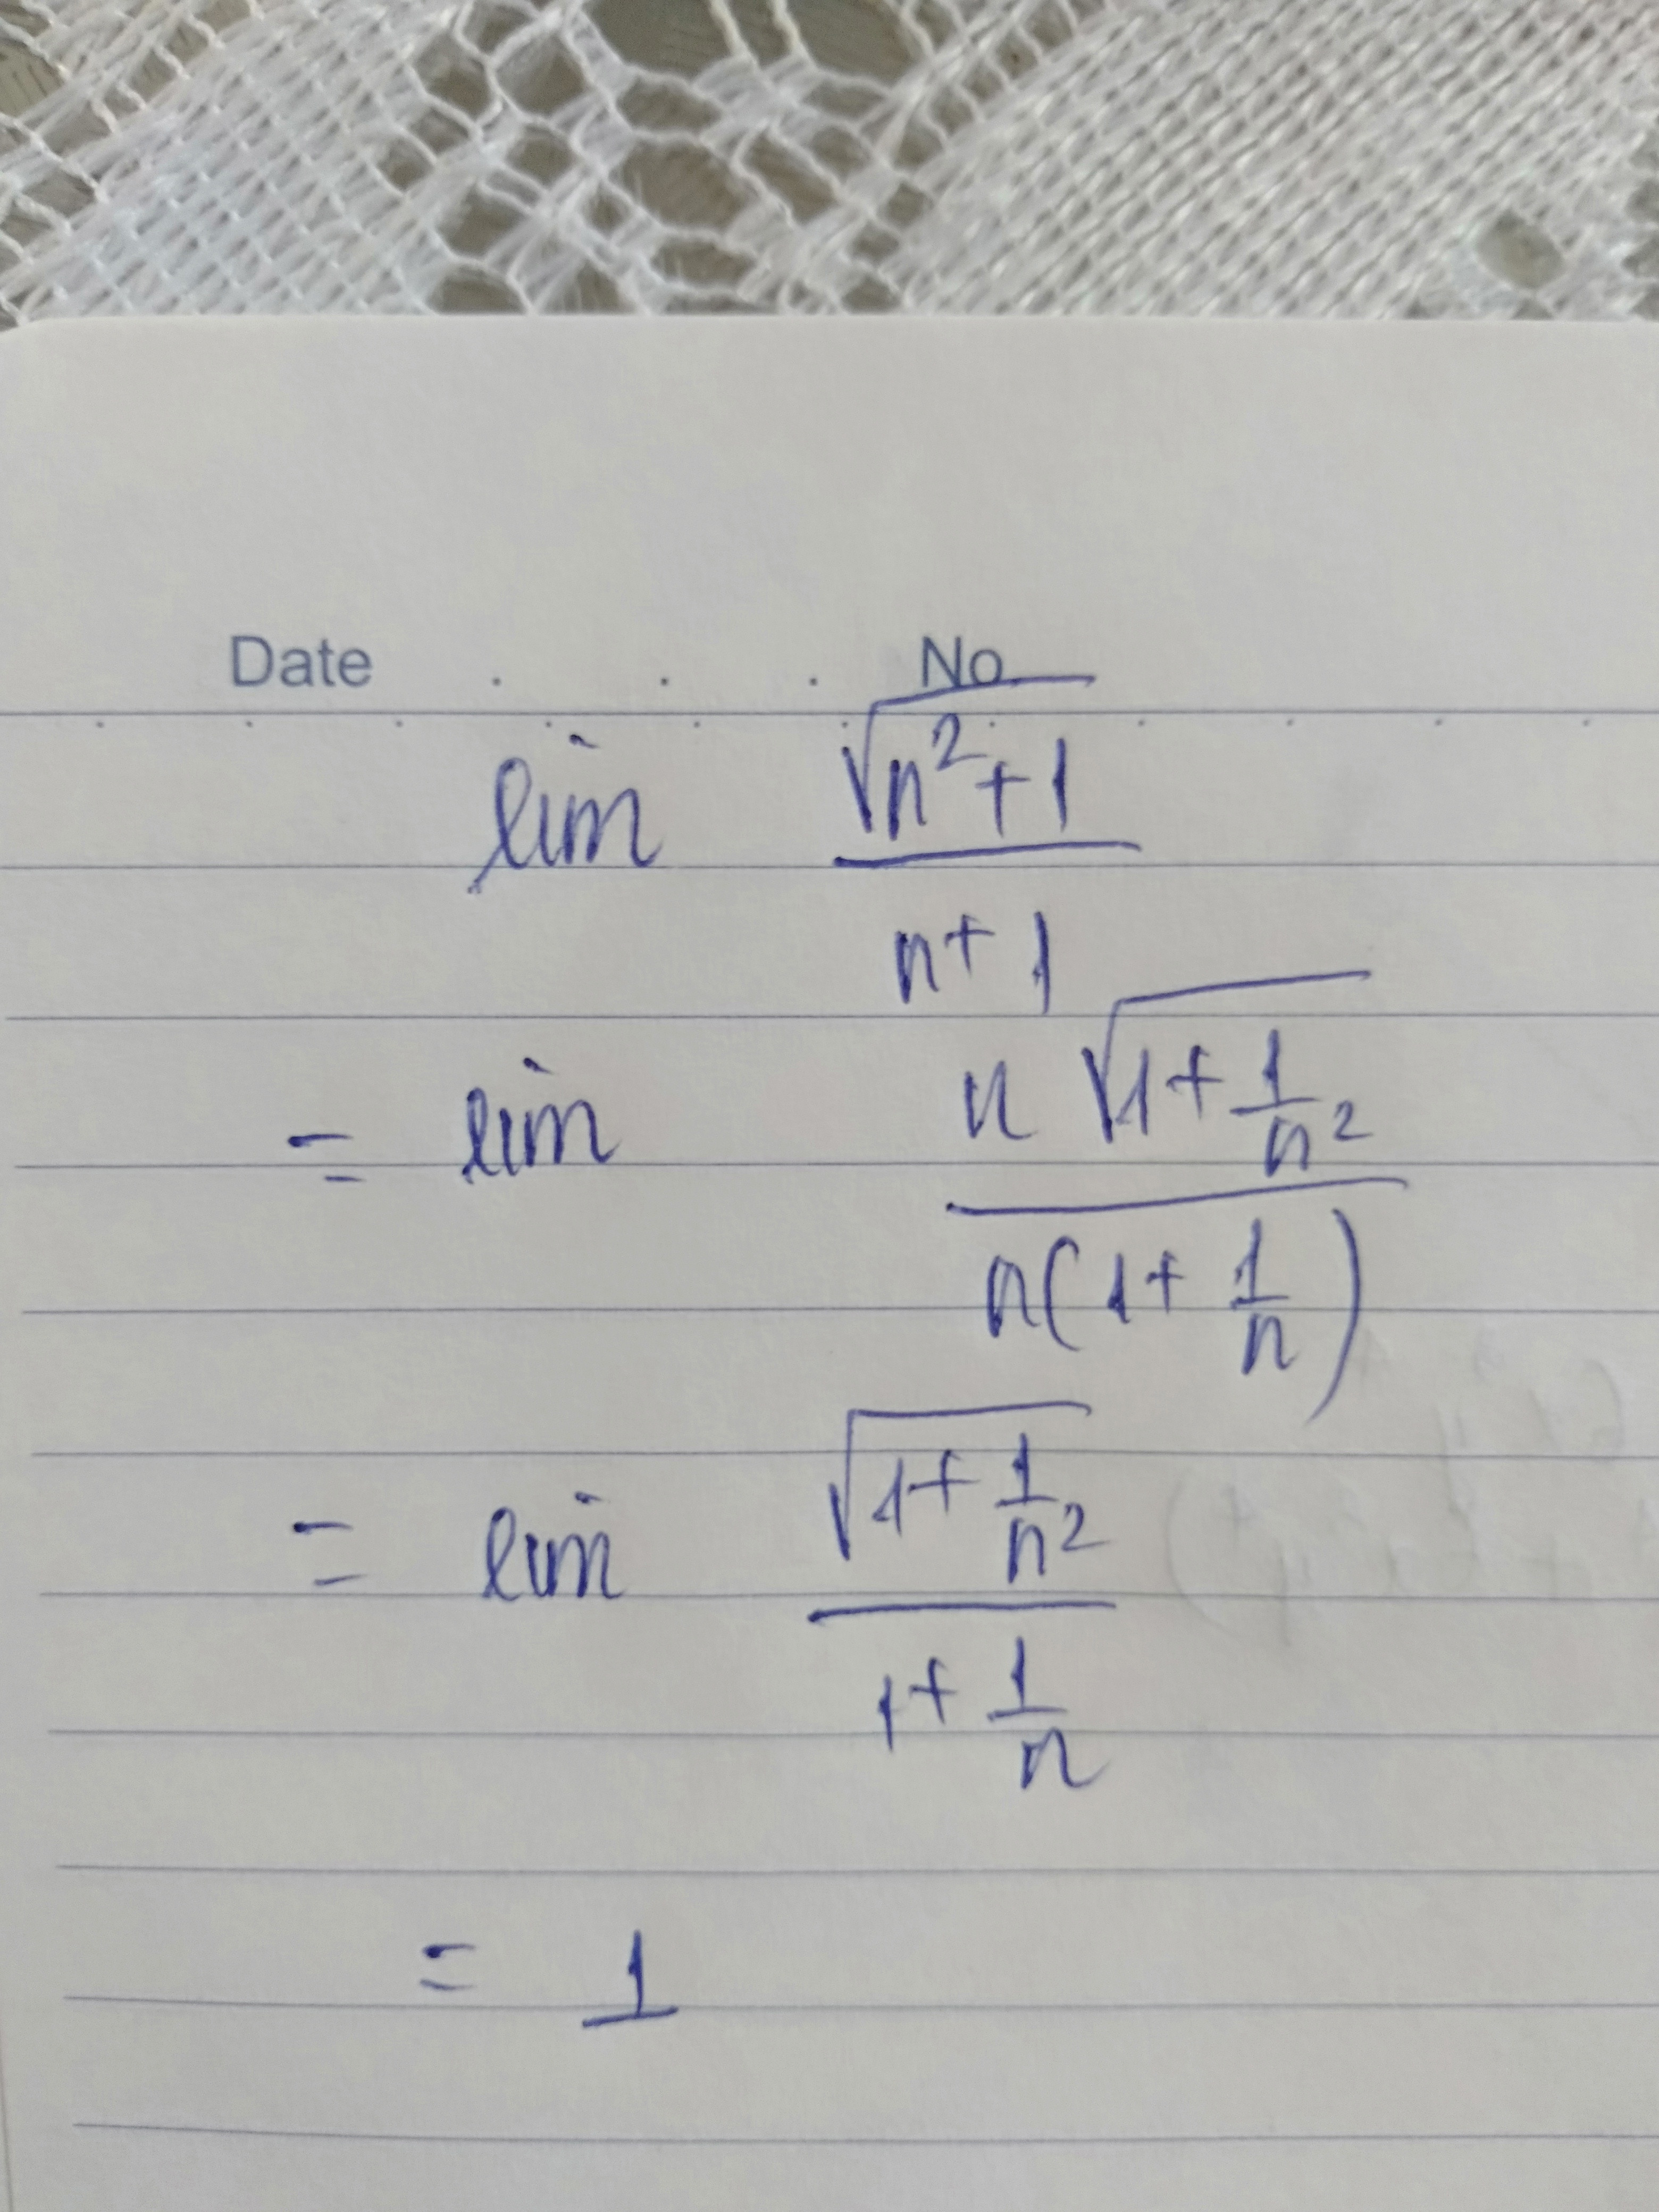 Date . . . No.
lim √(n²+1)
n+1
= lim n √(1+1/n²)
n(1+1/n)
= lim √(1+1/n²)
1+1/n
= 1